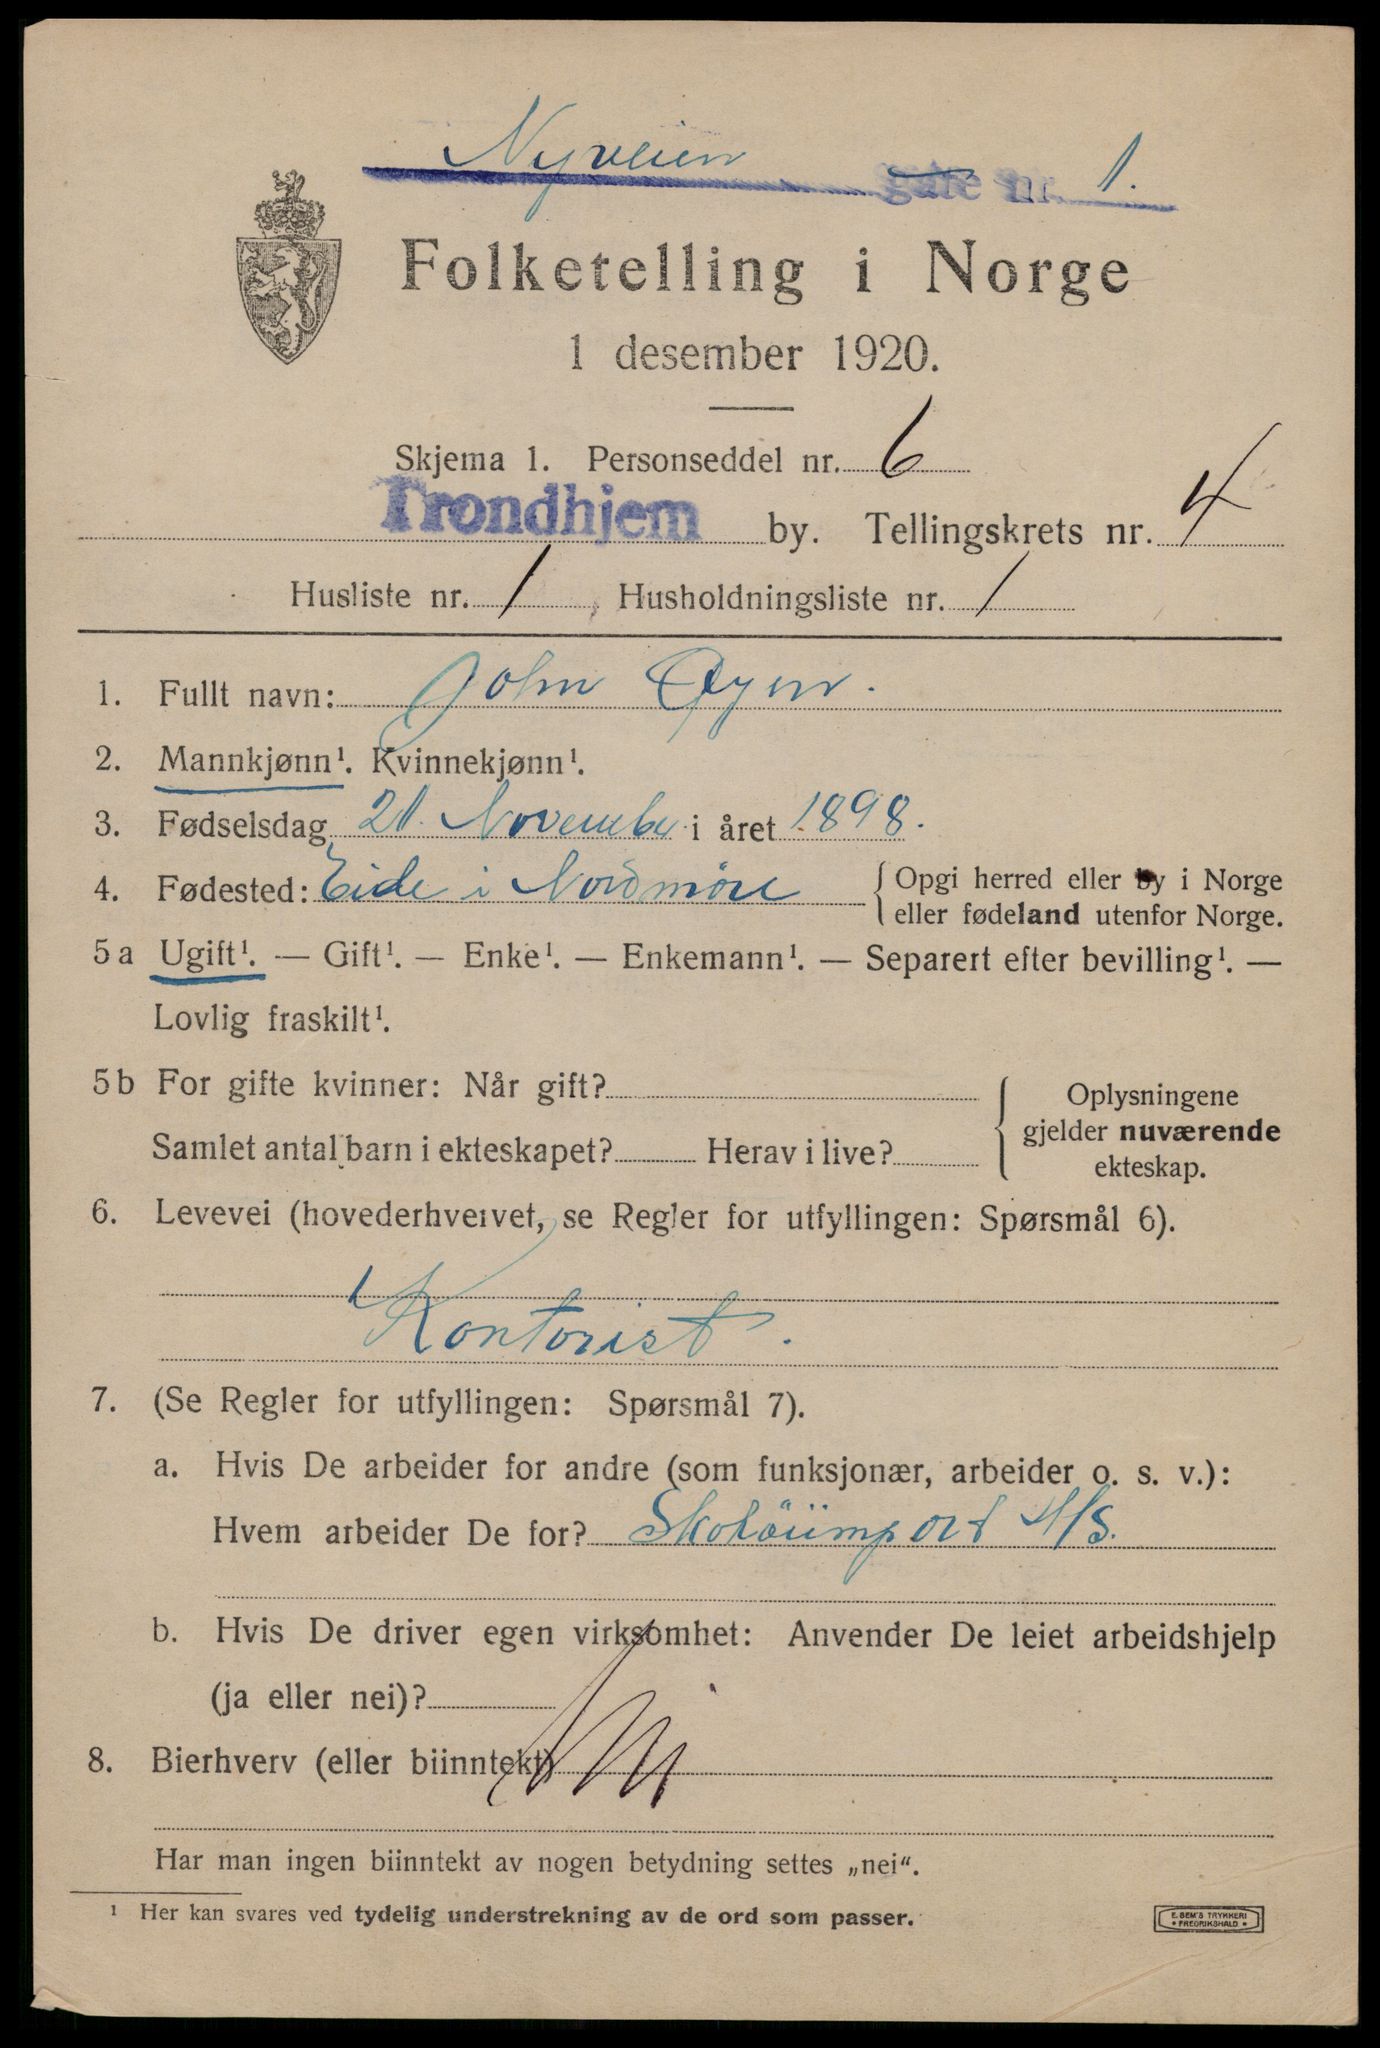 Nyveien gate nr. 1.
Folketelling i Norge
1 desember 1920.
Skjema 1. Personseddel nr. 6
Trondhjem by. Tellingskrets nr. 4
Husliste nr. 1 Husholdningsliste nr. 1
1. Fullt navn: John Øyen.
2. Mannkjønn¹. Kvinnekjønn¹.
3. Fødselsdag 21. November i året 1898.
4. Fødested: Eide i Nordmöre { Opgi herred eller by i Norge
eller fødeland utenfor Norge.
5 a Ugift¹. — Gift¹. — Enke¹. — Enkemann¹. — Separert efter bevilling¹. —
Lovlig fraskilt¹.
5 b For gifte kvinner: Når gift? { Oplysningene
gjelder nuværende
Samlet antal barn i ekteskapet? Herav i live?
ekteskap.
6. Levevei (hovederhvervet, se Regler for utfyllingen: Spørsmål 6).
Kontorist.
7. (Se Regler for utfyllingen: Spørsmål 7).
a. Hvis De arbeider for andre (som funksjonær, arbeider o. s. v.):
Hvem arbeider De for? Skotöiimport A/S.
b. Hvis De driver egen virksomhet: Anvender De leiet arbeidshjelp
(ja eller nei)?
8. Bierhverv (eller biinntekt) Nei
Har man ingen biinntekt av nogen betydning settes „nei“.
¹ Her kan svares ved tydelig understrekning av de ord som passer.
E. SEM'S TRYKKERI
• FREDRIKSHALD •